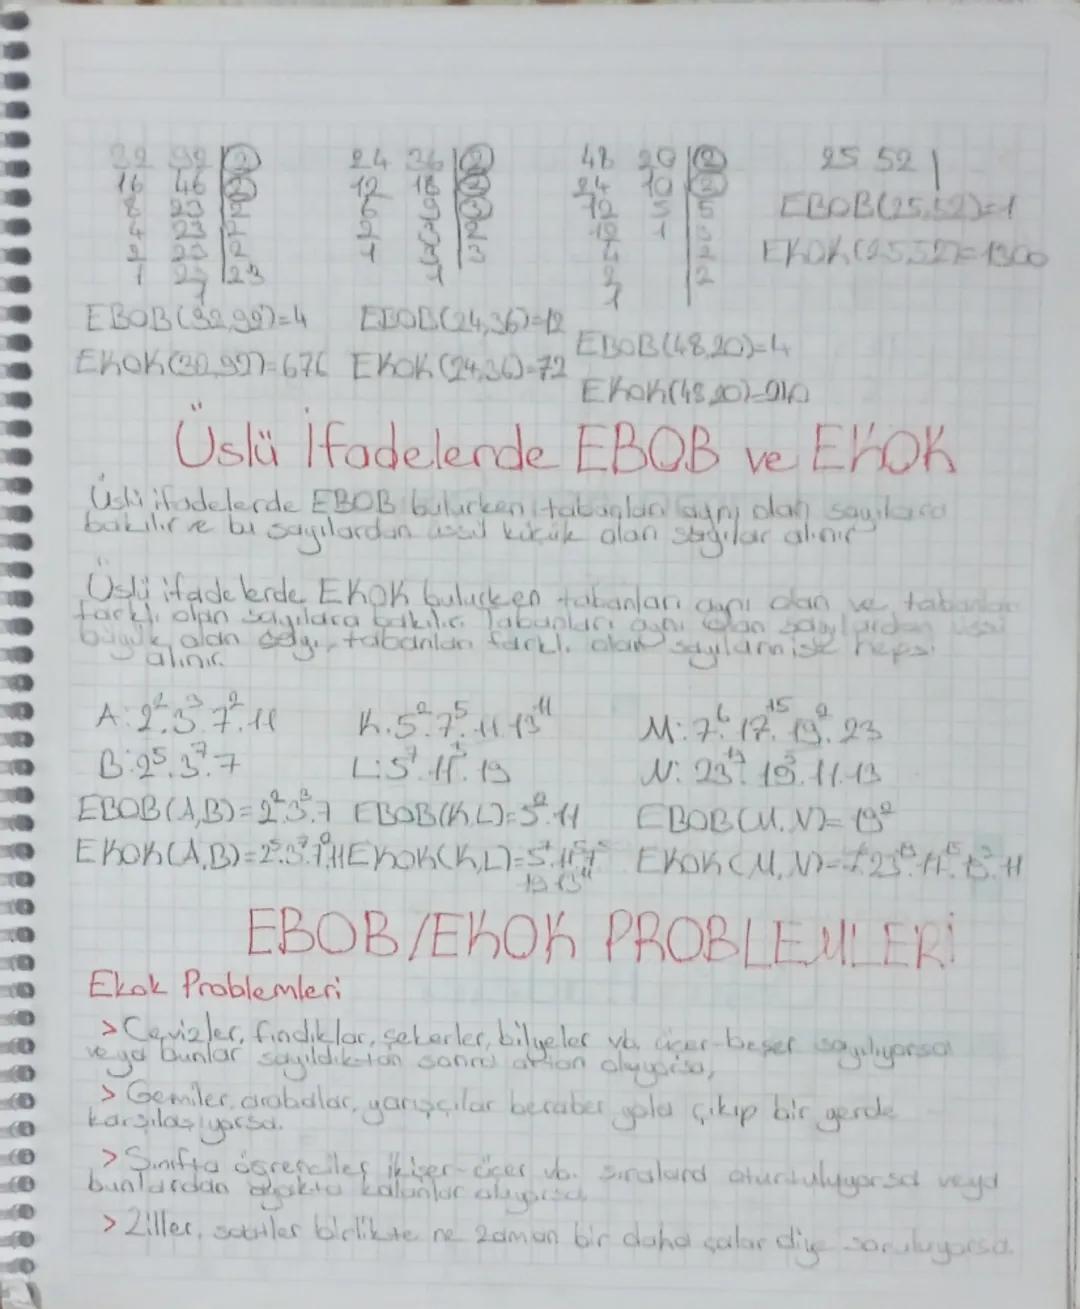 32 92 | 2
16 46 | 2
8 23 | 2
4 23 | 2
2 23 | 2
1 23 | 23
1
24 36 | 2
12 18 | 2
6 9 | 3
2 3 | 2
1 3 | 3
1
48 20 | 2
24 10 | 2
12 5 | 5
12 1 | 3
4 | 2
2 | 2
1
25 52 |
EBOB(25,52)=1
EKOK(25,52)=1300
EBOB(32,92)=4
EBOB(24,36)=12
EBOB(48,20)=4
EKOK(32,92)=676
EKOK(24,36)=72
EKOK(48,20)=240
Üslü İfadelerde EBOB ve EKOK
Üslü ifadelerde EBOB bulurken tabanları aynı olan sayılara
bakılır ve bu sayılardan üssü küçük olan sayılar alınır
Üslü ifadelerde EKOK bulurken tabanları aynı olan ve tabanları
farklı olan sayılara bakılır. Tabanları aynı olan sayılardan üssü
büyük olan sayı, tabanları farklı olan sayıların ise hepsi
alınır.
A: 2².3³.7².11
K: 5².7⁵.11.13¹¹
M: 7⁶.17¹⁵.19².23
B: 2⁵.3⁷.7
L: 5⁷.11⁵.19
N: 23¹³.19³.11.13
EBOB(A,B)=2².3³.7
EBOB(K,L)=5².11
EBOB(M,N)=19²
EKOK(A,B)=2⁵.3⁷.7².11
EKOK(K,L)=5⁷.11⁵.7⁵
19.13¹¹
EKOK(M,N)=
EBOB/EKOK PROBLEMLERİ
Ekok Problemleri
> Cevizler, fındıklar, şekerler, bilyeler vb. üçer-beşer sayılıyorsa
veya bunlar sayıldıktan sonra artan oluyorsa,
> Gemiler, arabalar, yarışçılar beraber yola çıkıp bir yerde
karşılaşıyorsa.
> Sınıfta öğrenciler ikişer-üçer vb. sıralara oturtuluyorsa veya
bunlardan ayakta kalanlar oluyorsa
> Ziller, saatler birlikte ne zaman bir daha çalar diye soruluyorsa.